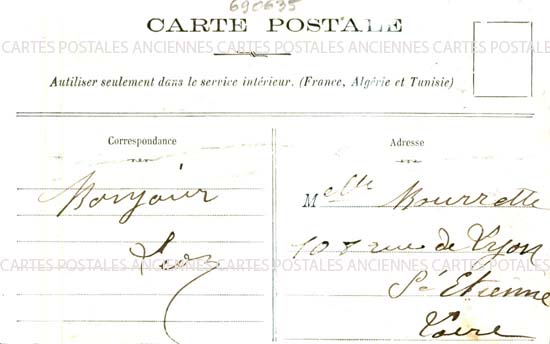 690635
CARTE POSTALE
CARTES POSTALES ANCIENNES CARTES POSTALES ANCIENNES CARTES POSTALES ANCIENNES
Autiliser seulement dans le service intérieur. (France, Algérie et Tunisie)
Correspondance
Bonjour
Léon
Adresse
Melle Bourrette
107 rue de Lyon
CARTES POSTALES ANCIENNES CARTES POSTALES ANCIENNES CARTES POSTALES ANCIENNES
St Etienne
Loire